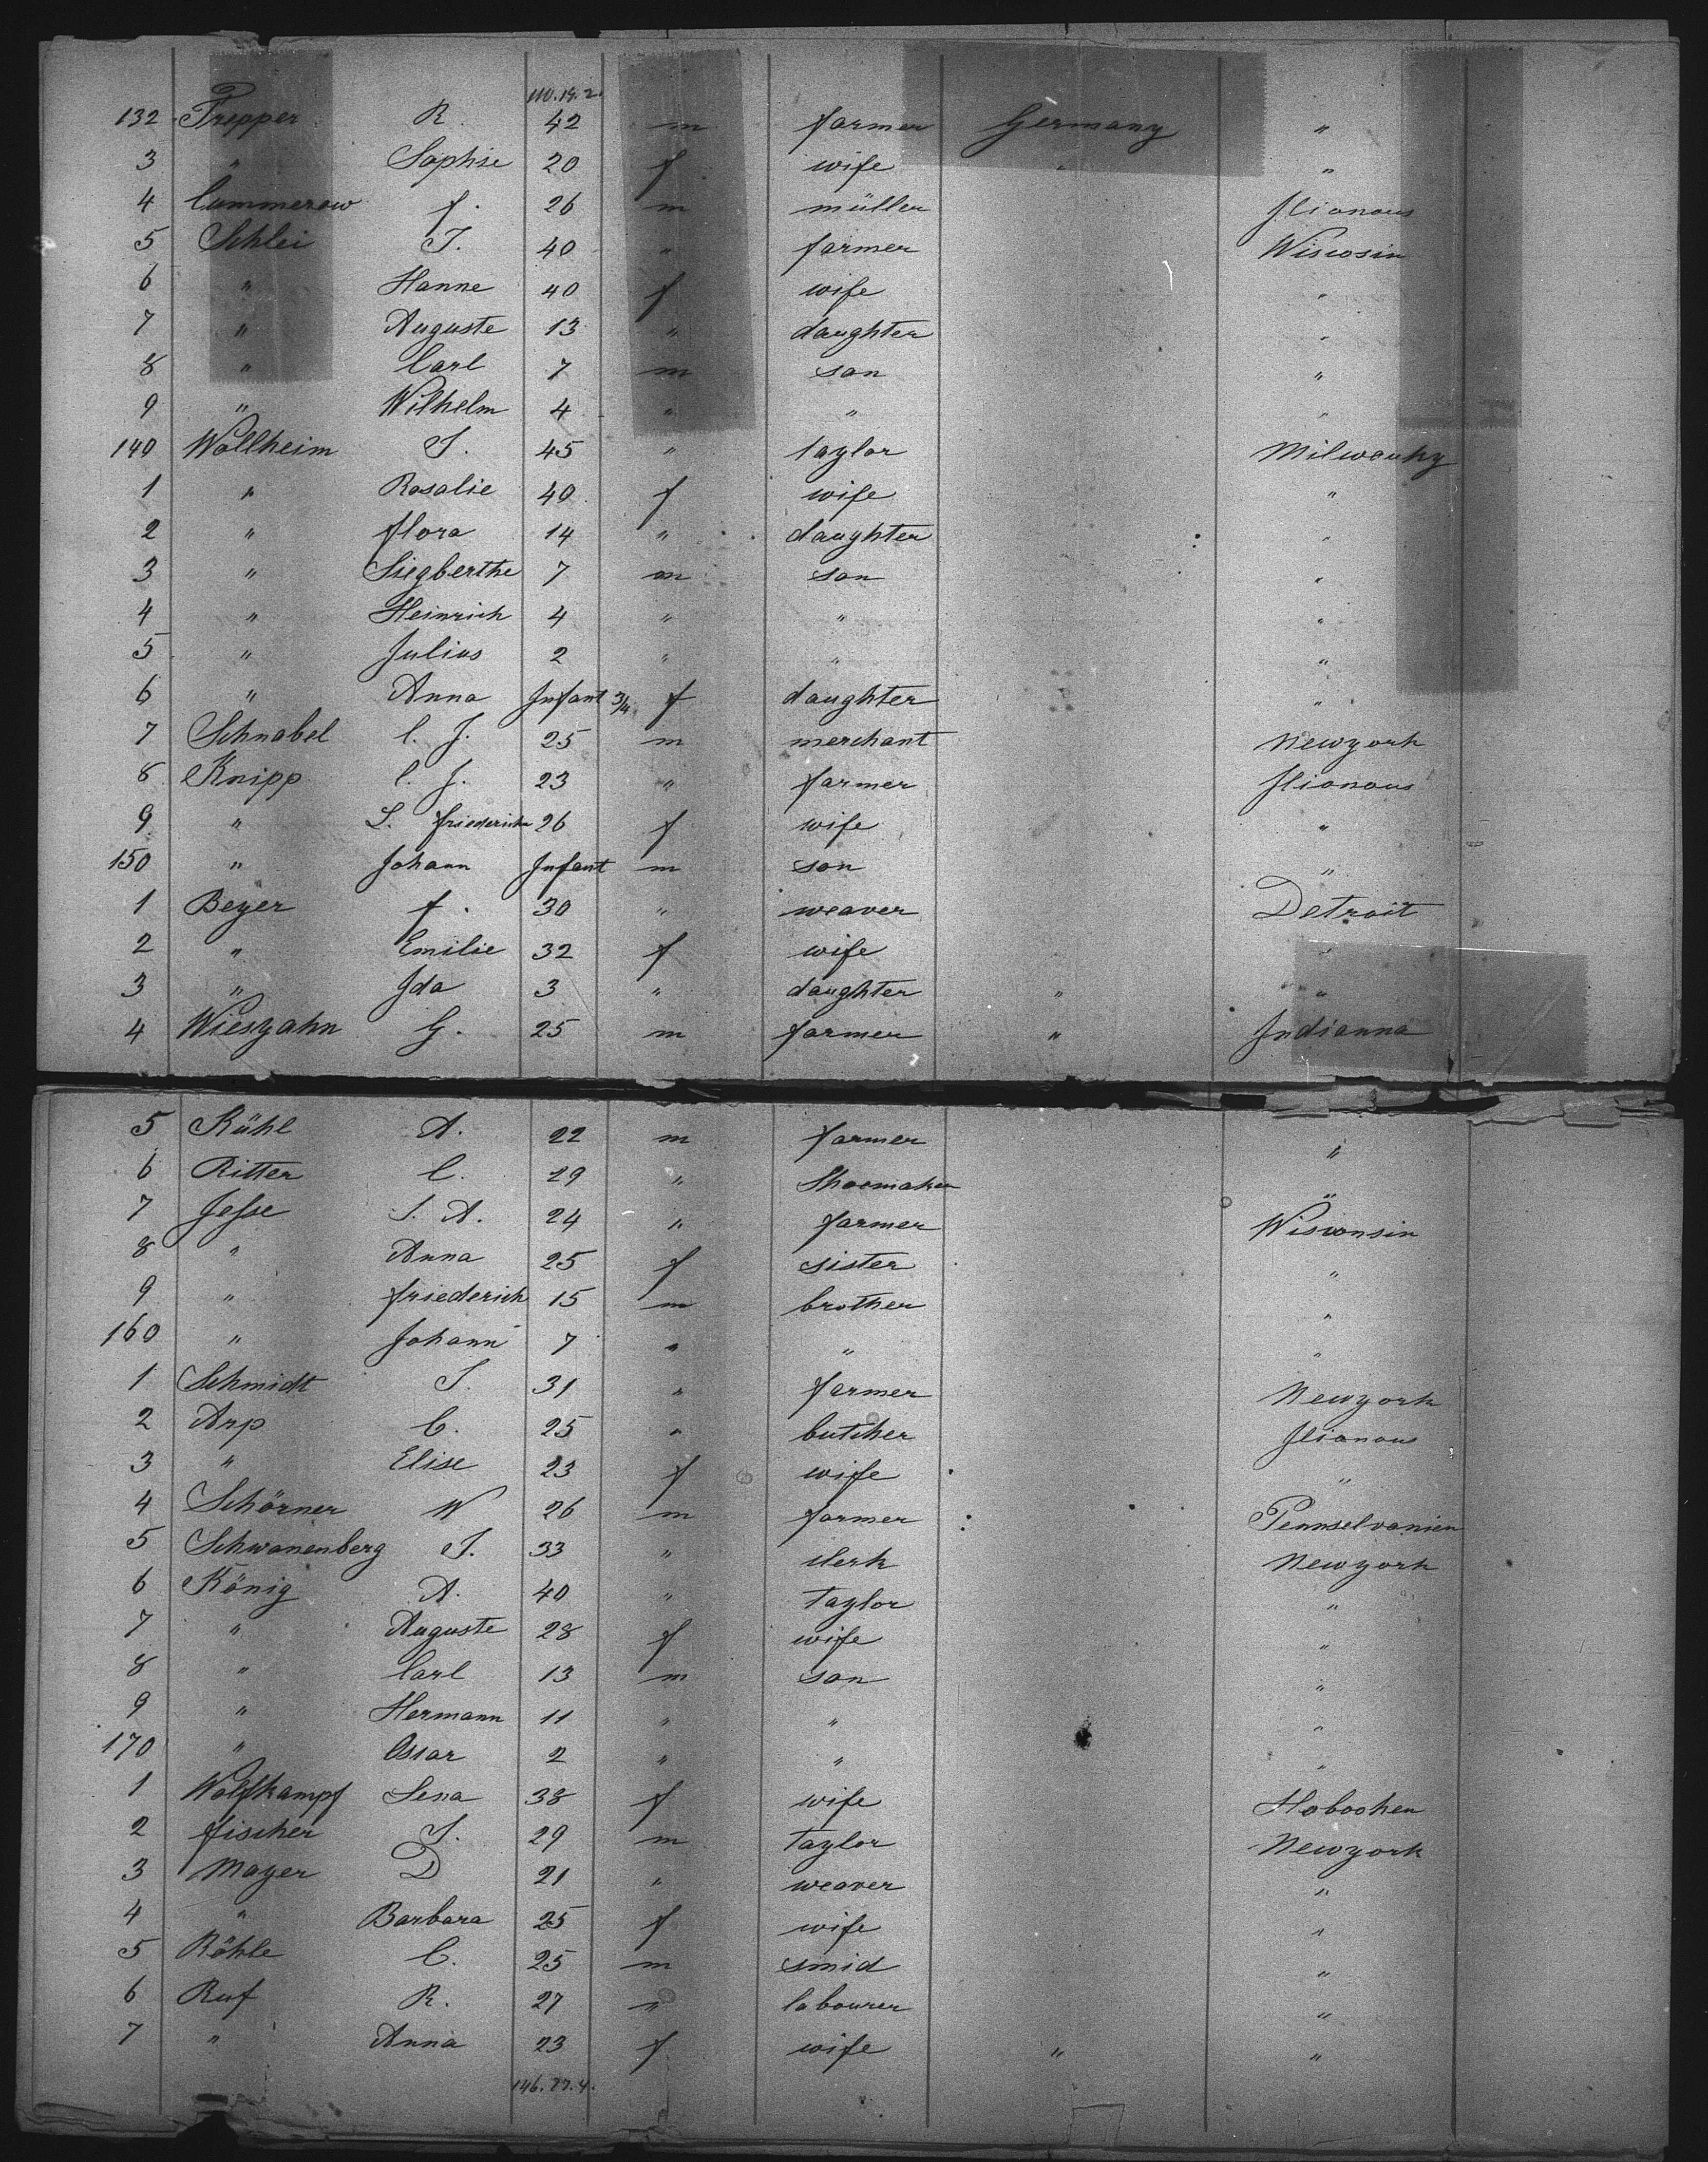 110. 19. 2.
132 Trepper R. 42 m farmer Germany "
3 " Sophie 20 f wife " "
4 Cummerow f. 26 m müller Ilianous
5 Schlei J. 40 " farmer Wiscosin
6 " Hanne 40 f wife "
7 " Auguste 13 " daughter "
8 " Carl 7 m son "
9 " Wilhelm 4 " " "
140 Wollheim J. 45 " taylor Milwauky
1 " Rosalie 40 f wife "
2 " flora 14 " daughter "
3 " Siegberthe 7 m son "
4 " Heinrich 4 " " "
5 " Julius 2 " " "
6 " Anna Infant 3/4 f daughter "
7 Schnabel C. J. 25 m merchant Newyork
8 Knipp C. J. 23 " farmer Ilianous
9 " L. friederike 26 f wife "
150 " Johann Infant m son "
1 Beyer f. 30 " weaver Detroit
2 " Emilie 32 f wife "
3 " Ida 3 " daughter " "
4 Wieszahn G. 25 m farmer " Indianna
5 Kühl A. 22 m farmer "
6 Ritter C. 29 " Shoemaker "
7 Jesse J. A. 24 " farmer Wisconsin
8 " Anna 25 f sister "
9 " friederich 15 m brother "
160 " Johann 7 " " "
1 Schmidt J. 31 " farmer Newyork
2 Arp C. 25 " butcher Ilianous
3 " Elise 23 f wife "
4 Schörner W 26 m farmer Pennselvanien
5 Schwanenberg J. 33 " clerk Newyork
6 König A. 40 " taylor "
7 " Auguste 28 f wife "
8 " Carl 13 m son "
9 " Hermann 11 " " "
170 " Oscar 2 " " "
1 Wolfkampf Lena 38 f wife Hoboohen
2 fischer J. 29 m taylor Newyork
3 Mayer D 21 " weaver "
4 " Barbara 25 f wife "
5 Röhle C. 25 m smid "
6 Ruf R. 27 " labourer "
7 " Anna 23 f wife " "
146. 27. 4.